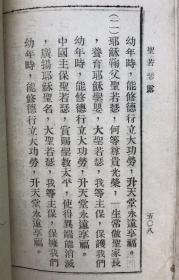 聖若瑟
五〇八
幼年時，能修德行立大功勞，升天堂永遠享福。
(二)耶穌鞠父聖若瑟，何等尊貴光榮，一生常做聖家長
，養育耶穌聖嬰，大聖若瑟，我等主保，保護我們
幼年時，能修德行立大功勞，升天堂永遠享福。
中國主保聖若瑟，賞賜聖教太平，使得異端能消滅
，廣揚耶穌聖名，大聖若瑟，我等主保，保擁我們
幼年時，能修德行立大功勞，升天堂永遠享福。